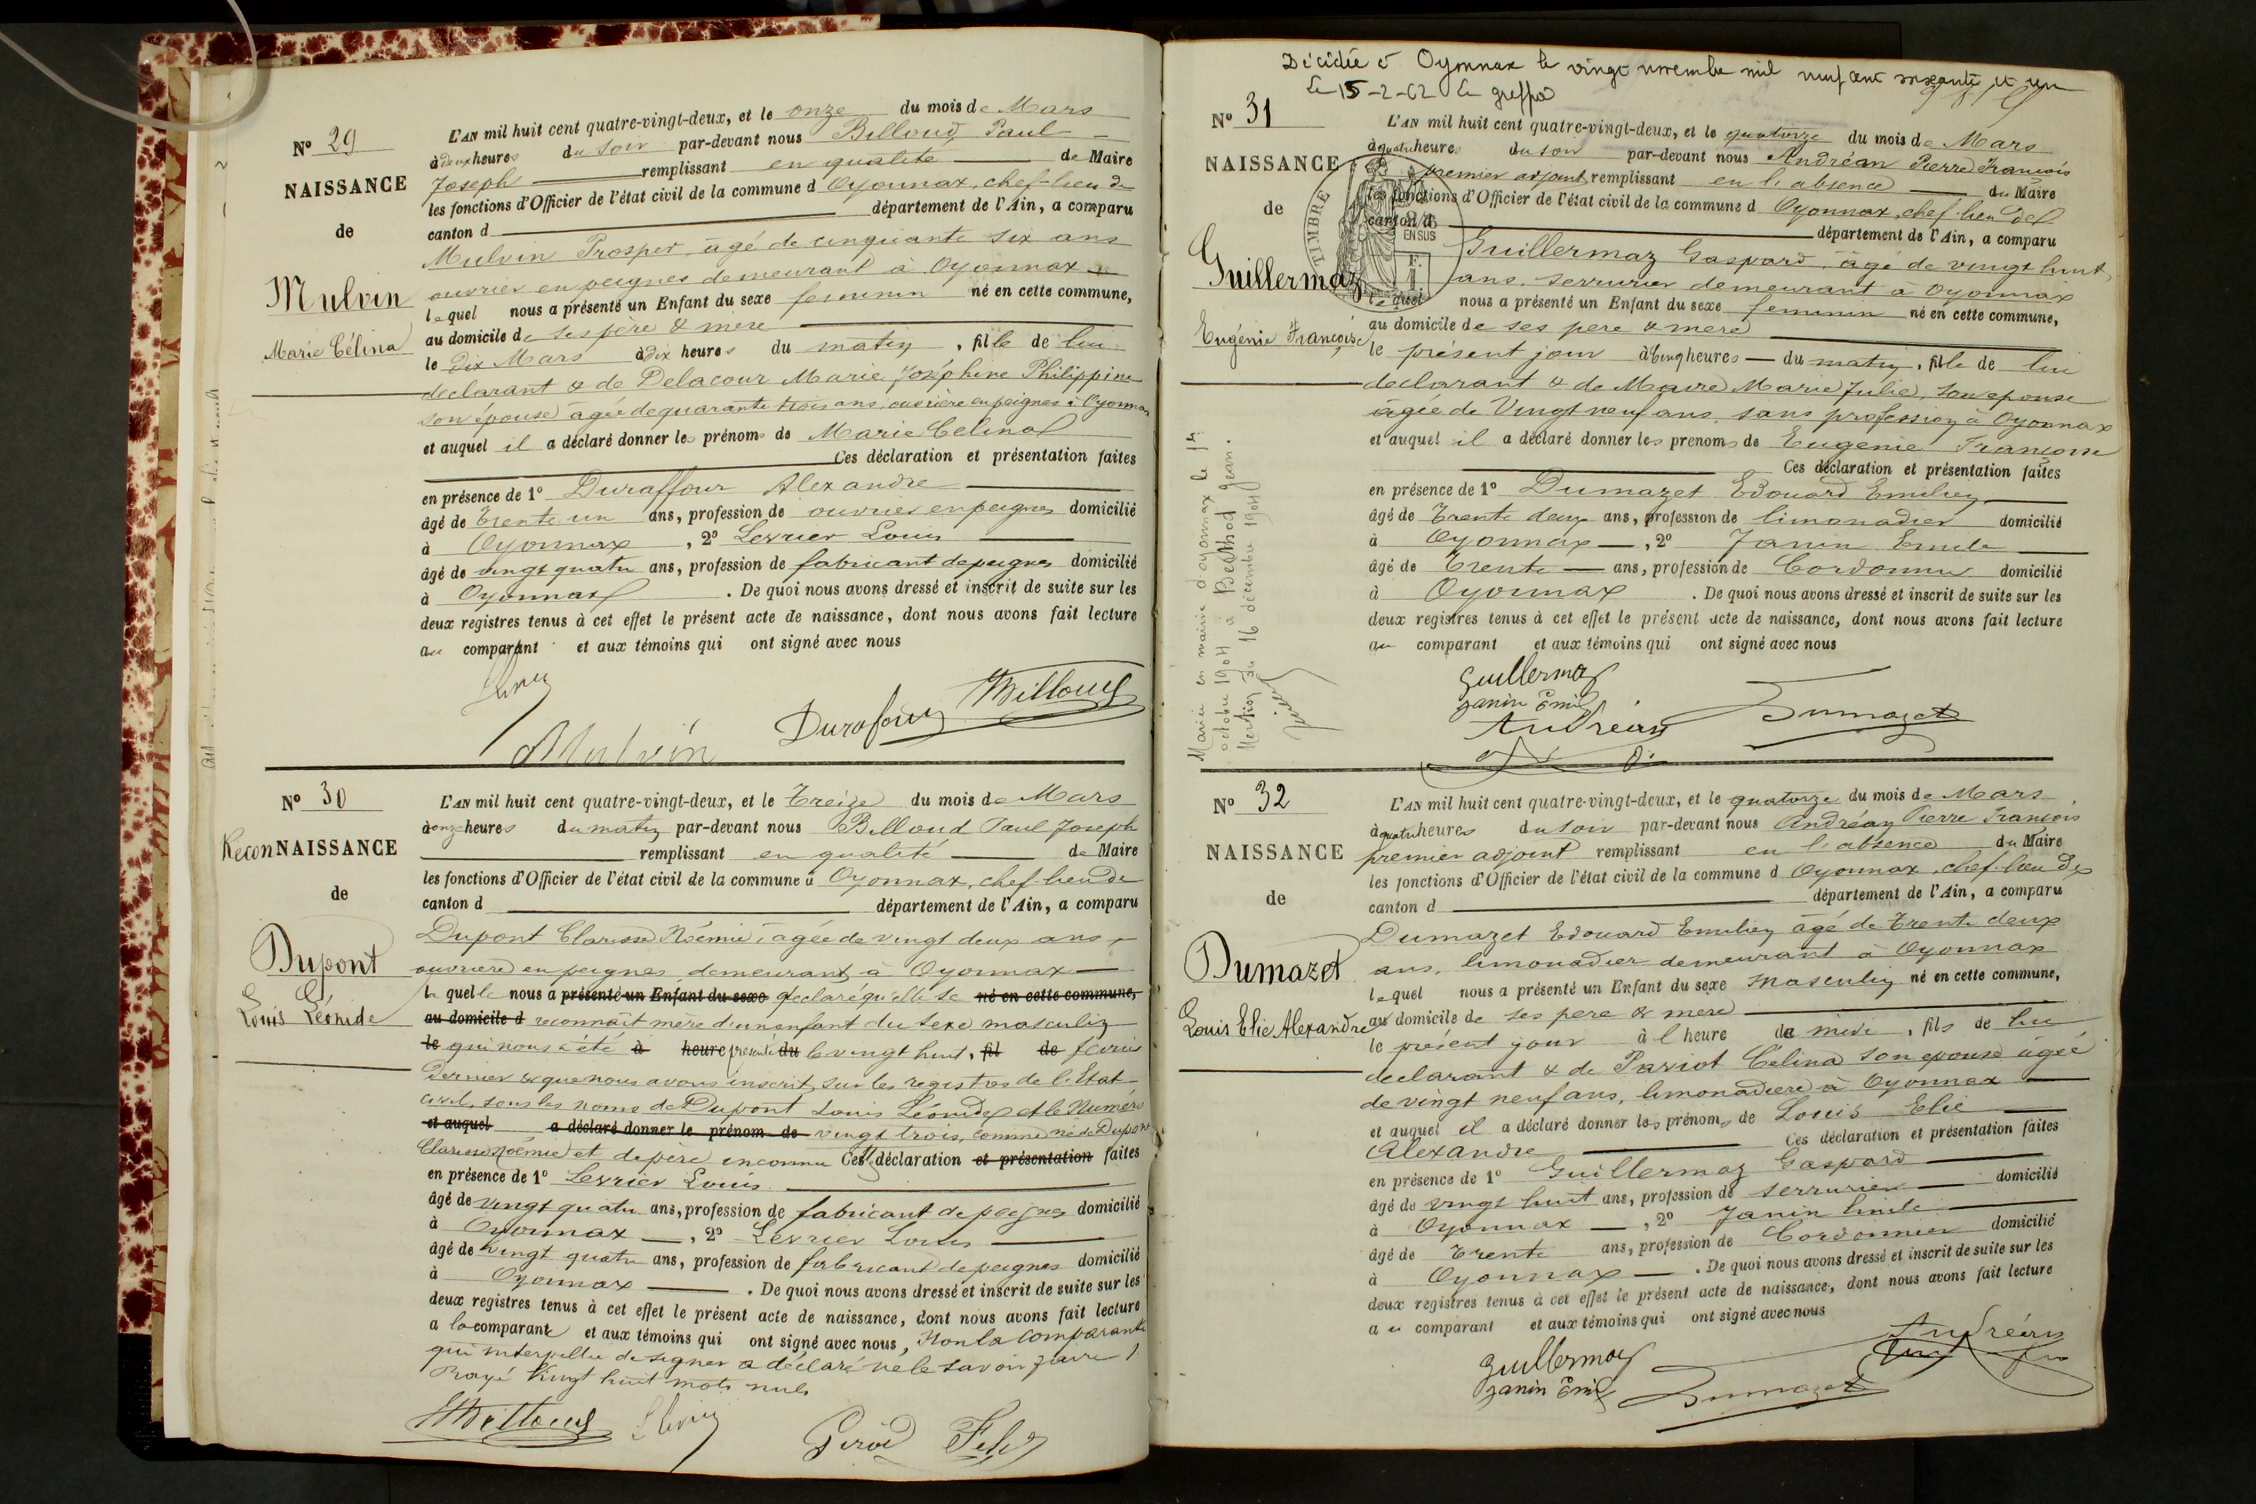 N° 29
NAISSANCE
de
Mulvin
Marie Célina
L'AN mil huit cent quatre-vingt-deux, et le onze du mois de Mars
à deux heures du soir par-devant nous Billoud, Paul
Joseph remplissant en qualité de Maire
les fonctions d'Officier de l'état civil de la commune d Oyonnax, chef-lieu de
canton d département de l'Ain, a comparu
Mulvin Prosper, âgé de cinquante six ans
ouvrier en peignes demeurant à Oyonnax
lequel nous a présenté un Enfant du sexe feminin né en cette commune,
au domicile de ses père & mère
le dix Mars à dix heures du matin, fille de lui
declarant & de Delacour Marie Joséphine Philippine
son épouse âgée de quarante trois ans, ouvrière en peignes à Oyonnax
et auquel il a déclaré donner les prénoms de Marie Célina
Ces déclaration et présentation faites
en présence de 1° Duraffour Alexandre
âgé de trente un ans, profession de ouvrier en peignes domicilié
à Oyonnax, 2° Levrier Louis
âgé de vingt quatre ans, profession de fabricant de peignes domicilié
à Oyonnax. De quoi nous avons dressé et inscrit de suite sur les
deux registres tenus à cet effet le présent acte de naissance, dont nous avons fait lecture
au comparant et aux témoins qui ont signé avec nous
Mulvin Durafour Billoud
N° 30
ReconNAISSANCE
de
Dupont
Louis Léonide
L'AN mil huit cent quatre-vingt-deux, et le Treize du mois de Mars
à onze heures du matin par-devant nous Billoud Paul Joseph
remplissant en qualité de Maire
les fonctions d'Officier de l'état civil de la commune d Oyonnax, chef-lieu de
canton d département de l'Ain, a comparu
Dupont Clarisse Noémie, âgée de vingt deux ans,
ouvrière en peignes demeurant à Oyonnax
la quelle nous a présenté un Enfant du sexe declaré qu'elle se né en cette commune,
au domicile d reconnaît mère d'un enfant du sexe masculin
le qui nous a été à heure présenté du le vingt huit, fil de fevrier
dernier & que nous avons inscrit sur les registres de l'Etat
civil, sous les noms de Dupont Louis Léonide et le Numéro
et auquel a déclaré donner le prénom de vingt trois, comme né de Dupont
Clarisse Noémie et de père inconnu Ces déclaration et présentation faites
en présence de 1° Levrier Louis
âgé de vingt quatre ans, profession de fabricant de peignes domicilié
à Oyonnax, 2° Levrier Louis
âgé de vingt quatre ans, profession de fabricant de peignes domicilié
à Oyonnax. De quoi nous avons dressé et inscrit de suite sur les
deux registres tenus à cet effet le présent acte de naissance, dont nous avons fait lecture
a la comparante et aux témoins qui ont signé avec nous, Non la comparante
qui interpellée de signer a déclaré ne le savoir faire
Rayé vingt huit mots nuls
Billoud
Décédée à Oyonnax le vingt novembre mil neuf cent soixante et un
Le 15-2-62 Le greffier
N° 31
NAISSANCE
de
Guillermaz
Eugénie Françoise
TIMBRE
EN SUS
L'AN mil huit cent quatre-vingt-deux, et le quatorze du mois de Mars
à quatre heures du soir par-devant nous Andréan Pierre François
premier adjoint remplissant en l'absence du Maire
les fonctions d'Officier de l'état civil de la commune d Oyonnax, chef-lieu de
canton d département de l'Ain, a comparu
Guillermaz Gaspard, âgé de vingt huit
ans, serrurier demeurant à Oyonnax
lequel nous a présenté un Enfant du sexe feminin né en cette commune,
au domicile de ses père & mère
le présent jour à cinq heures du matin, fille de lui
declarant & de Maire Marie Julie, son epouse
âgée de Vingt neuf ans, sans profession à Oyonnax
et auquel il a déclaré donner les prénoms de Eugénie Françoise
Ces déclaration et présentation faites
en présence de 1° Dumazet Edouard Emilien
âgé de Trente deux ans, profession de limonadier domicilié
à Oyonnax, 2° Janin Emile
âgé de Trente ans, profession de Cordonnier domicilié
à Oyonnax. De quoi nous avons dressé et inscrit de suite sur les
deux registres tenus à cet effet le présent acte de naissance, dont nous avons fait lecture
au comparant et aux témoins qui ont signé avec nous
Mariée en mairie d'Oyonnax le 1er
octobre 1904 à Berthod Jean.
Mention du 16 décembre 1904
Guillermaz
Janin Emile
Andréan Dumazet
N° 32
NAISSANCE
de
Dumazet
Louis Elie Alexandre
L'AN mil huit cent quatre-vingt-deux, et le quatorze du mois de Mars
à quatre heures du soir par-devant nous Andréan Pierre François
premier adjoint remplissant en l'absence du Maire
les fonctions d'Officier de l'état civil de la commune d Oyonnax, chef-lieu de
canton d département de l'Ain, a comparu
Dumazet Edouard Emilien âgé de Trente deux
ans, limonadier demeurant à Oyonnax
lequel nous a présenté un Enfant du sexe masculin né en cette commune,
au domicile de ses père & mère
le présent jour à l'heure de midi, fils de lui
declarant & de Pariot Célina son epouse âgée
de vingt neuf ans, limonadière à Oyonnax
et auquel il a déclaré donner les prénoms de Louis Elie
Alexandre Ces déclaration et présentation faites
en présence de 1° Guillermaz Gaspard
âgé de vingt huit ans, profession de serrurier domicilié
à Oyonnax, 2° Janin Emile
âgé de Trente ans, profession de Cordonnier domicilié
à Oyonnax. De quoi nous avons dressé et inscrit de suite sur les
deux registres tenus à cet effet le présent acte de naissance, dont nous avons fait lecture
au comparant et aux témoins qui ont signé avec nous
Guillermaz Andréan
Janin Emile Dumazet